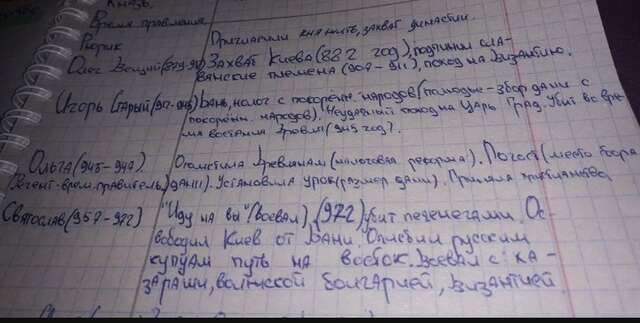 Князь.
Время правления.
Рюрик Пригласили княжить, захват династии.
Олег Вещий(879-912) Захват Киева(882 год), подчинил сла-
вянские племена (907-911), поход на Византию.
Игорь Старый(912-945) налог с покорённ. народов (полюдье-збор дани с
покорённ. народов). Неудачный поход на Царь Град. Убит во вре-
мя востания (945 год).
Ольга(945-947) Отомстила Древлянам (налоговая реформа). Погост (место сбора
Регент-врем.правитель) дани). Установила урок(размер дани). Приняла
Святослав(957-972) "Иду на вы"(воевал), (972) убит печенегами. Ос-
вободил Киев от Дани. русским
купцам путь на восток. Воевал с: ха-
зарами, волжской болгарией, Византией